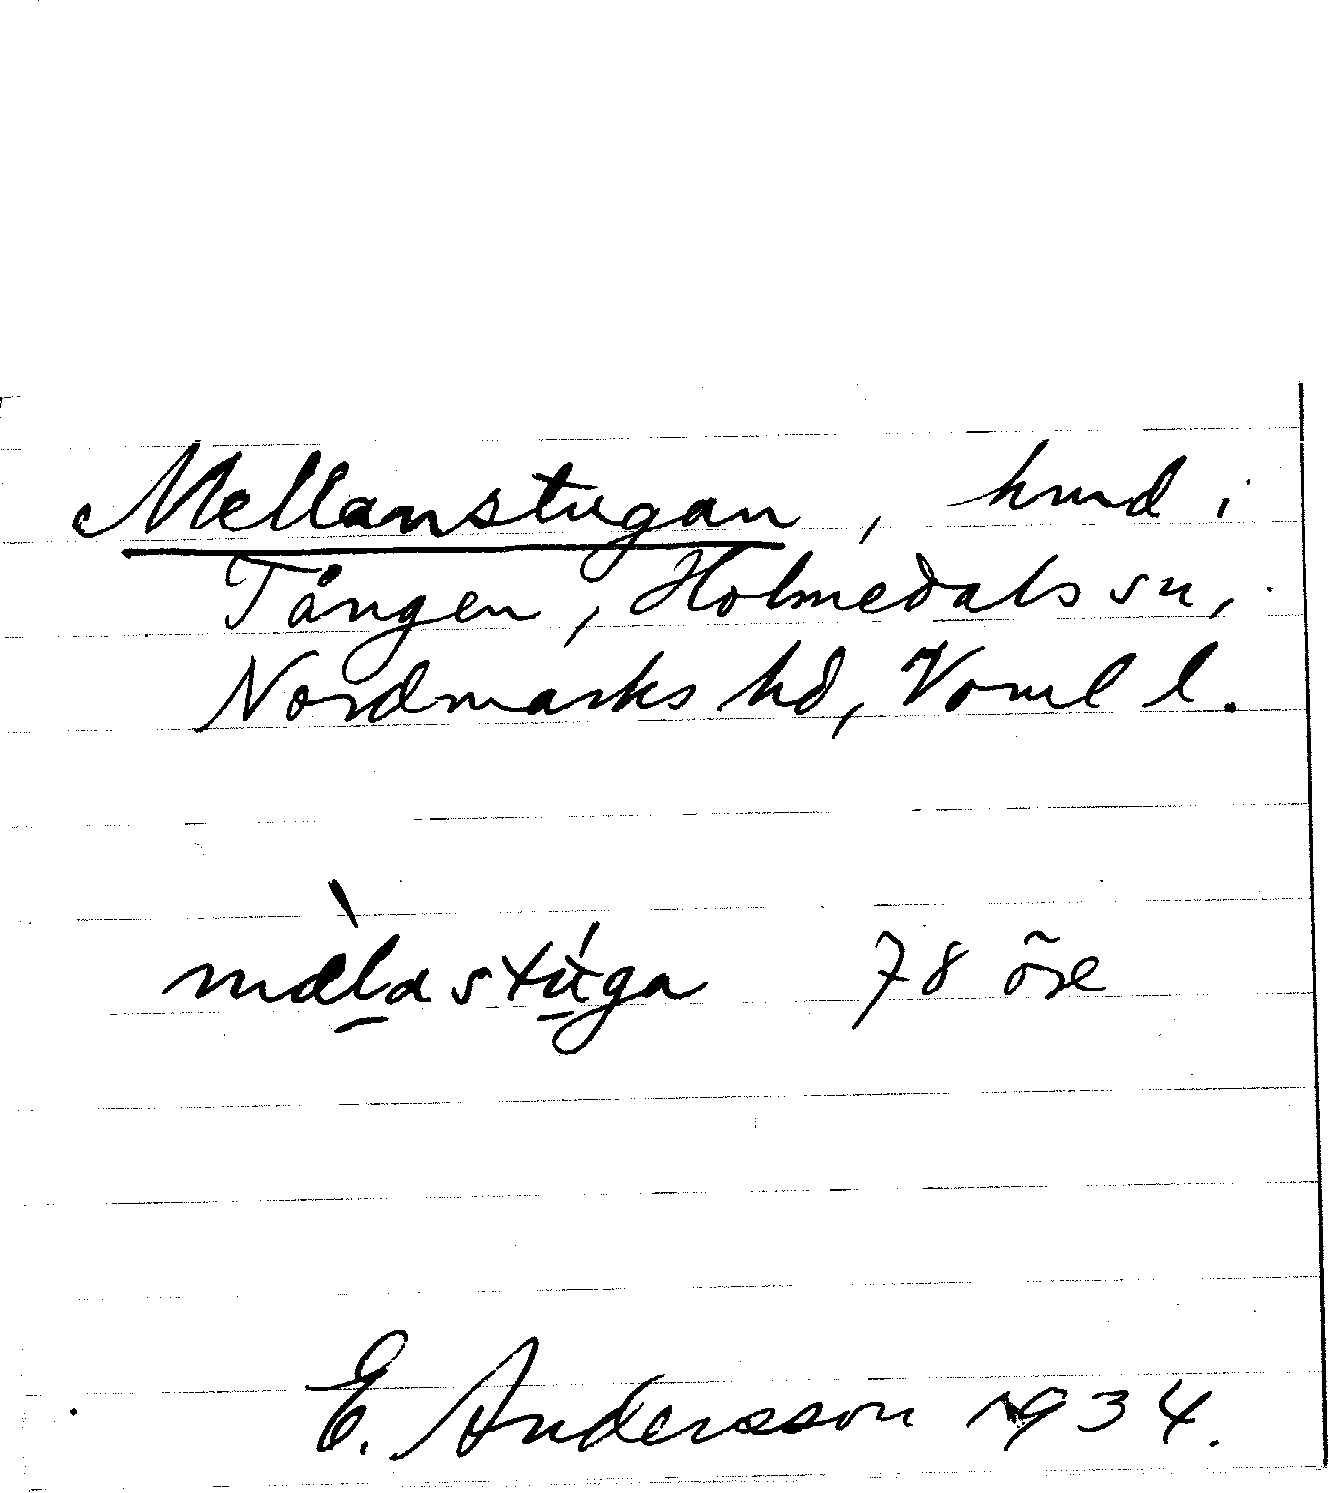 Mellanstugan, hmd i
Tången, Holmedals sn,
Nordmarks hd, Vrml l.
mæ̀lastúga 78 öre
E. Andersson 1934.